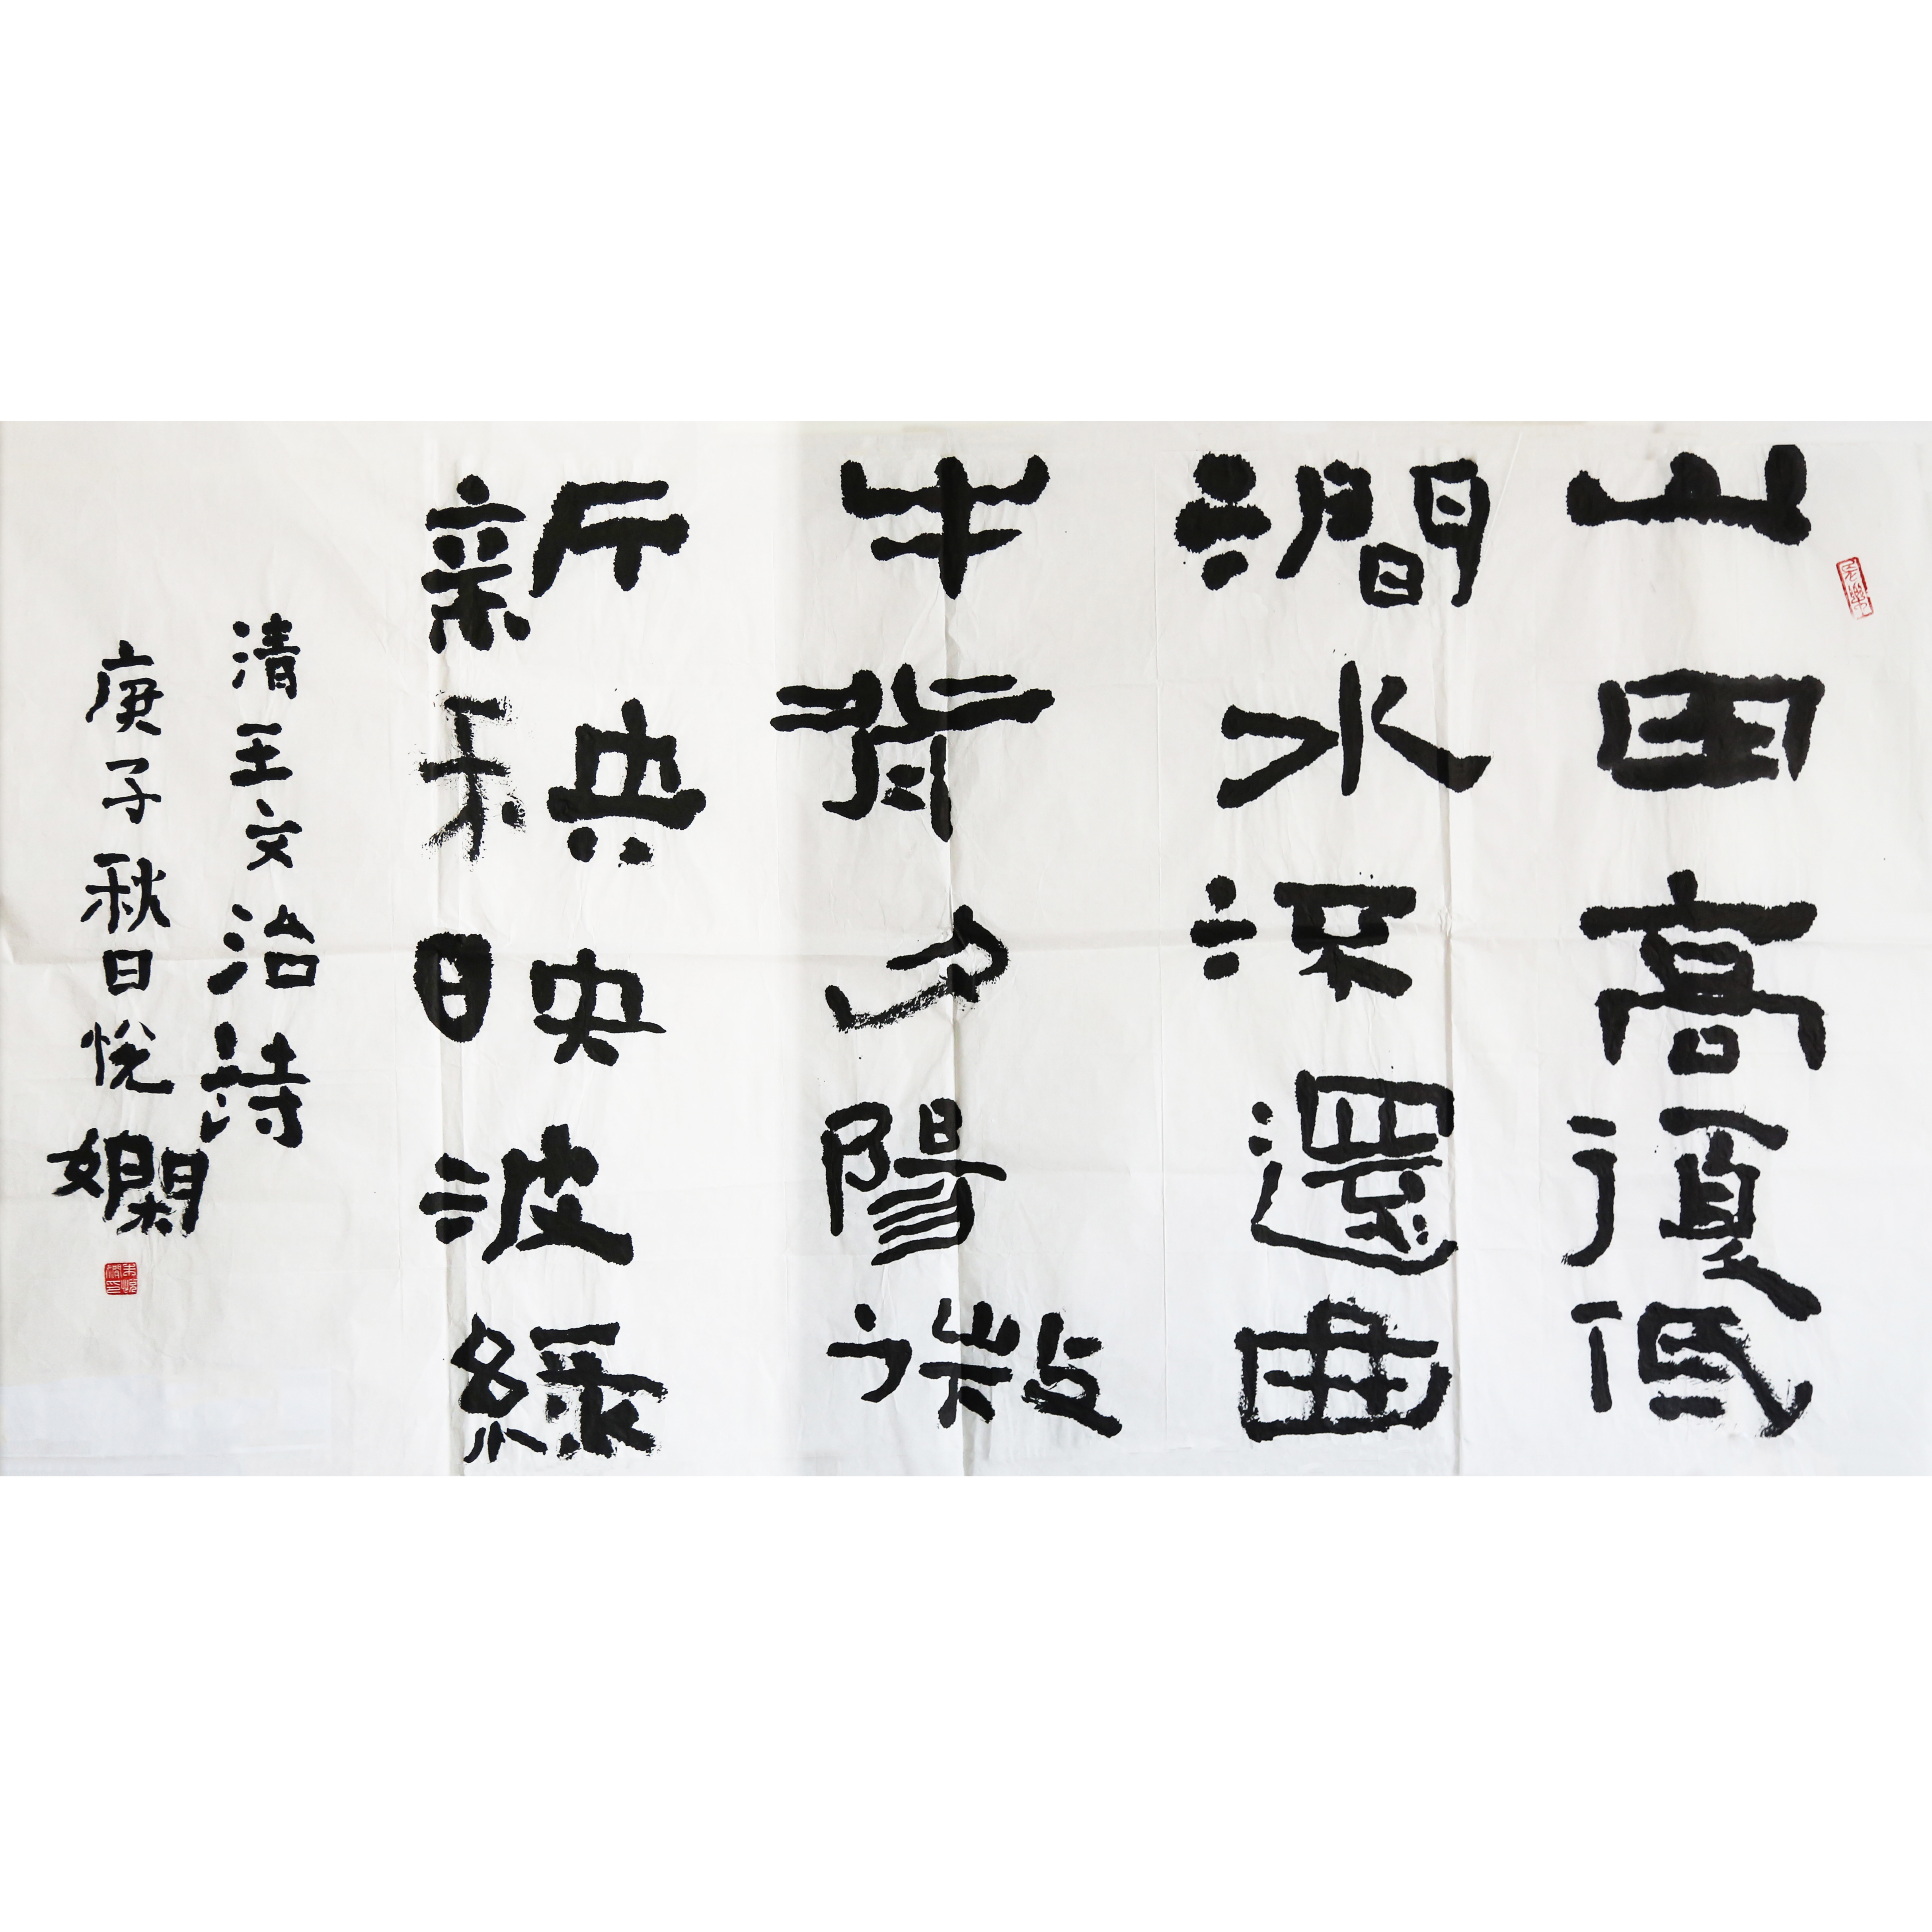 山田高復低
澗水深還曲
牛背夕陽微
新秧映波綠
清王文治詩
庚子秋日悅嫻